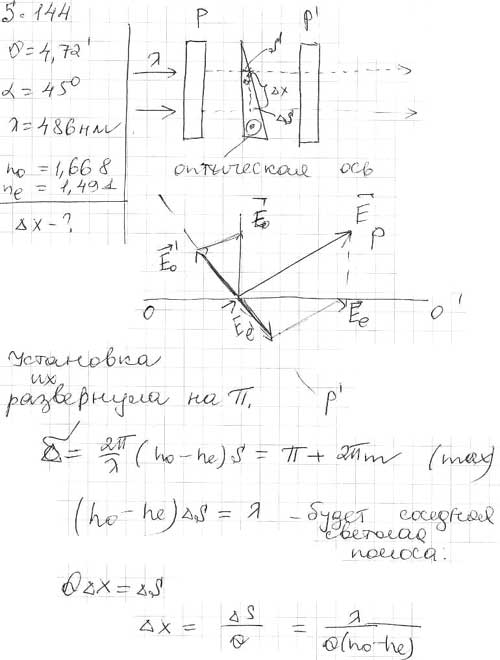 5.144
θ = 4,72'
α = 45°
λ = 486 нм
n₀ = 1,668
nₑ = 1,491
Δx - ?
P
P'
λ
S
Δx
ΔS
оптическая ось
E₀
E
P
E₀'
Eₑ'
Eₑ
O
O'
P'
Установка
их
развернула на π.
δ = 2π/λ (n₀ - nₑ) S = π + 2πm (max)
(n₀ - nₑ) ΔS = λ - будет соседная
светлая
полоса.
θΔx = ΔS
Δx = ΔS/θ = λ/θ(n₀ - nₑ)